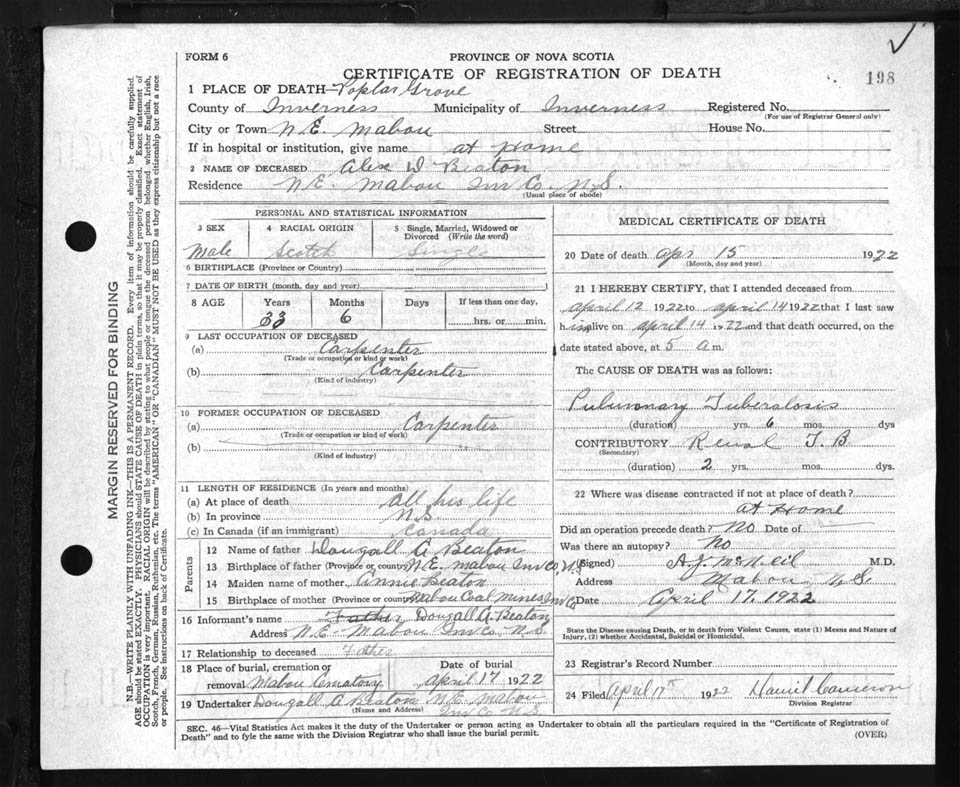 FORM 6
PROVINCE OF NOVA SCOTIA
CERTIFICATE OF REGISTRATION OF DEATH
198
1 PLACE OF DEATH Poplar Grove
County of Inverness Municipality of Inverness Registered No.
(For use of Registrar General only)
City or Town N.E. Mabou Street House No.
If in hospital or institution, give name at Home
2 NAME OF DECEASED Alex D Beaton
Residence N.E. Mabou Inv Co. N.S.
(Usual place of abode)
PERSONAL AND STATISTICAL INFORMATION
3 SEX 4 RACIAL ORIGIN 5 Single, Married, Widowed or Divorced (Write the word)
Male Scotch Single
6 BIRTHPLACE (Province or Country)
7 DATE OF BIRTH (month, day and year)
8 AGE Years Months Days If less than one day,
33 6 hrs. or min.
9 LAST OCCUPATION OF DECEASED
(a) Carpenter
(Trade or occupation or kind of work)
(b) Carpenter
(Kind of industry)
10 FORMER OCCUPATION OF DECEASED
(a) Carpenter
(Trade or occupation or kind of work)
(b)
(Kind of industry)
11 LENGTH OF RESIDENCE (In years and months)
(a) At place of death all his life
(b) In province N.S
(c) In Canada (if an immigrant) Canada
Parents
12 Name of father Dougall A Beaton
13 Birthplace of father (Province or country) N.E. Mabou Inv Co, N.S
14 Maiden name of mother Annie Beaton
15 Birthplace of mother (Province or country) Mabou Coal Mines Inv Co
16 Informant's name Father Dougall A. Beaton
Address N.E. Mabou Inv Co. N.S.
17 Relationship to deceased Father
18 Place of burial, cremation or removal Mabou Cematory Date of burial April 17 1922
19 Undertaker Dougall A Beaton N.E. Mabou
(Name and Address) Inv Co N.S.
MEDICAL CERTIFICATE OF DEATH
20 Date of death Apr 15 1922
(Month, day and year)
21 I HEREBY CERTIFY, that I attended deceased from
April 12 1922 to April 14 1922 that I last saw
him alive on April 14 1922 and that death occurred, on the
date stated above, at 5 a m.
The CAUSE OF DEATH was as follows:
Pulmonary Tuberculosis
(duration) yrs. 6 mos. dys
CONTRIBUTORY Renal T.B
(Secondary)
(duration) 2 yrs. mos. dys.
22 Where was disease contracted if not at place of death?
at Home
Did an operation precede death? No Date of
Was there an autopsy? No
(Signed) A.J. McNeil M.D.
Address Mabou, N.S
Date April 17, 1922
State the Disease causing Death, or in death from Violent Causes, state (1) Means and Nature of
Injury, (2) whether Accidental, Suicidal or Homicidal.
23 Registrar's Record Number
24 Filed April 17th 1922 Cameron
Division Registrar
SEC. 46—Vital Statistics Act makes it the duty of the Undertaker or person acting as Undertaker to obtain all the particulars required in the "Certificate of Registration of
Death" and to fyle the same with the Division Registrar who shall issue the burial permit.
(OVER)
MARGIN RESERVED FOR BINDING
N.B.—WRITE PLAINLY WITH UNFADING INK—THIS IS A PERMANENT RECORD. Every item of information should be carefully supplied.
AGE should be stated EXACTLY. PHYSICIANS should STATE CAUSE OF DEATH in plain terms, so that it may be properly classified. Exact statement of
OCCUPATION is very important. RACIAL ORIGIN will be described by stating to what people or tongue the deceased person belonged whether English, Irish,
Scotch, French, German, Russian, Ruthenian, etc. The terms "AMERICAN" OR "CANADIAN" MUST NOT BE USED as they express citizenship but not a race
or people. See instructions on back of Certificate.